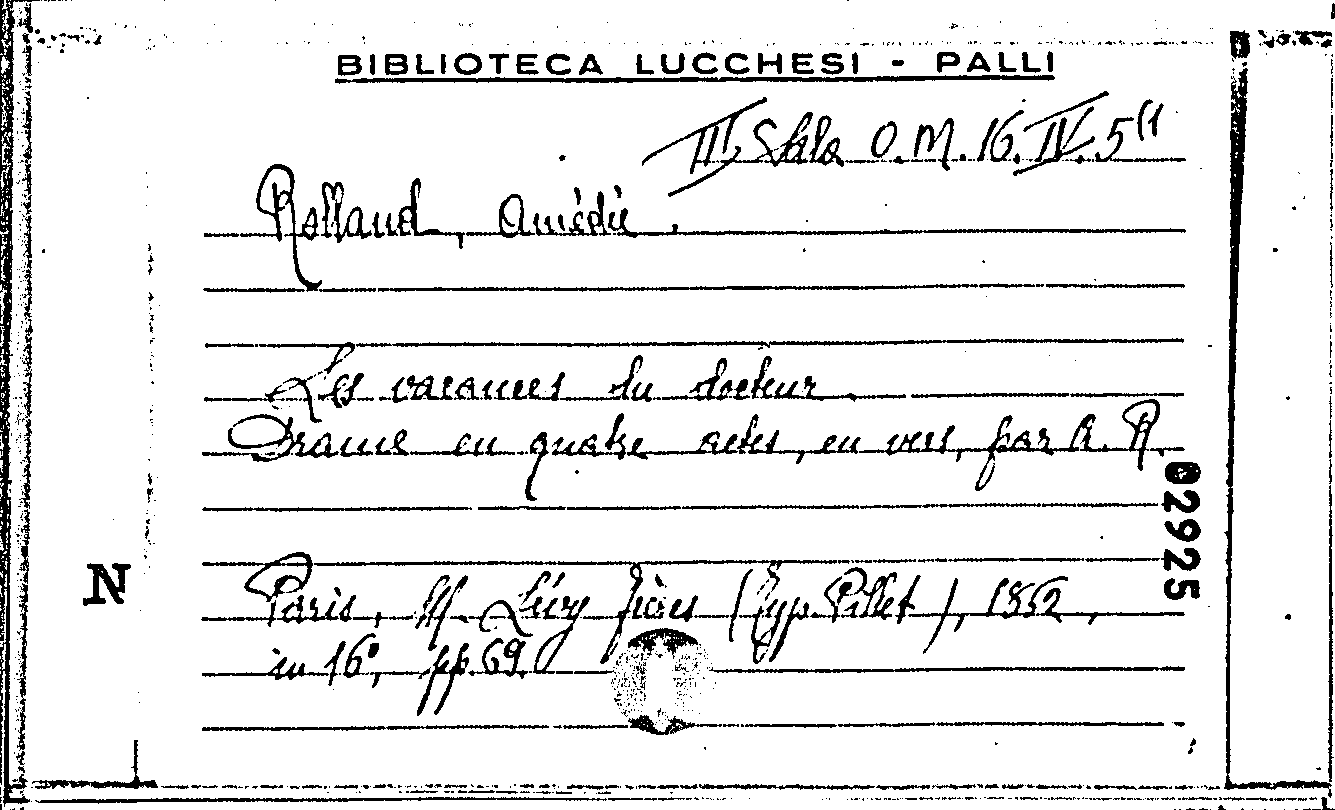 BIBLIOTECA LUCCHESI - PALLI
III Sala O.M. 16. IV. 5(1
Rolland, Amédée.
Les vacances du docteur.
Drame en quatre actes, en vers, par A. R.
02925
N
Paris, M. Lévy frères (Typ. Pillet), 1862,
in 16°, pp. 69.